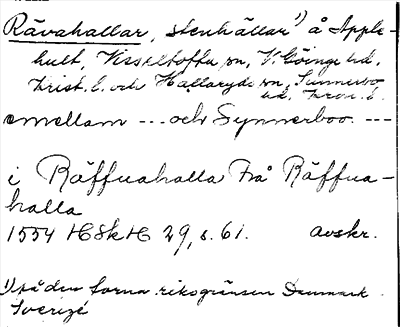 Rävahallar, stenhällar 1) å Apple-
hult, Visseltofta sn, V. Göinge hd,
Krist. l. och Hallaryds sn, Sunnerbo
hd, Kron. l.
emellam --- och Synnerboo ---
i Räffuahalla Frå Räffua-
halla
1554 HSkH 29, s. 61. avskr.
1) på den forna riksgränsen Danmark
Sverige